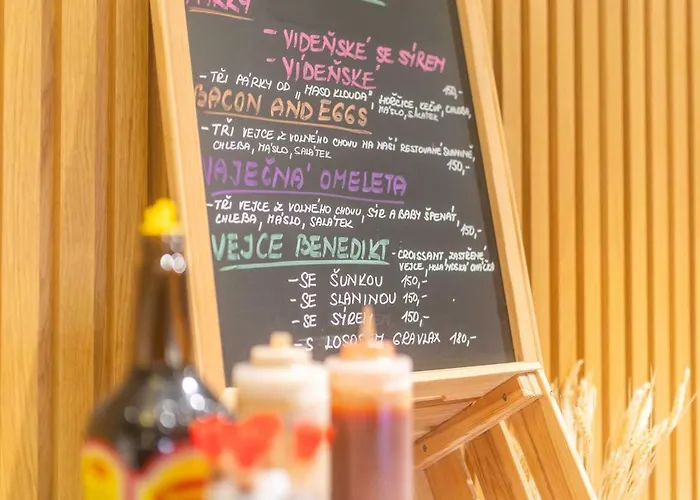 PÁRKY
- VIDEŇSKÉ SE SÝREM
- VÍDEŇSKÉ 150,-
- TŘI PÁRKY OD „MASO KLOUDA", HOŘČICE, KEČUP, CHLEBA, MÁSLO, SALÁTEK
BACON AND EGGS
- TŘI VEJCE Z VOLNÉHO CHOVU NA NAŠÍ RESTOVANÉ SLANINĚ,
CHLEBA, MÁSLO, SALÁTEK 150,-
VAJEČNÁ OMELETA
- TŘI VEJCE Z VOLNÉHO CHOVU, SÝR A BABY ŠPENÁT,
CHLEBA, MÁSLO, SALÁTEK 150,-
VEJCE BENEDIKT - CROISSANT, ZASTŘENÉ
VEJCE, OMÁČKA
- SE ŠUNKOU 150,-
- SE SLANINOU 150,-
- SE SÝREM 150,-
- S LOSOSEM GRAVLAX 180,-